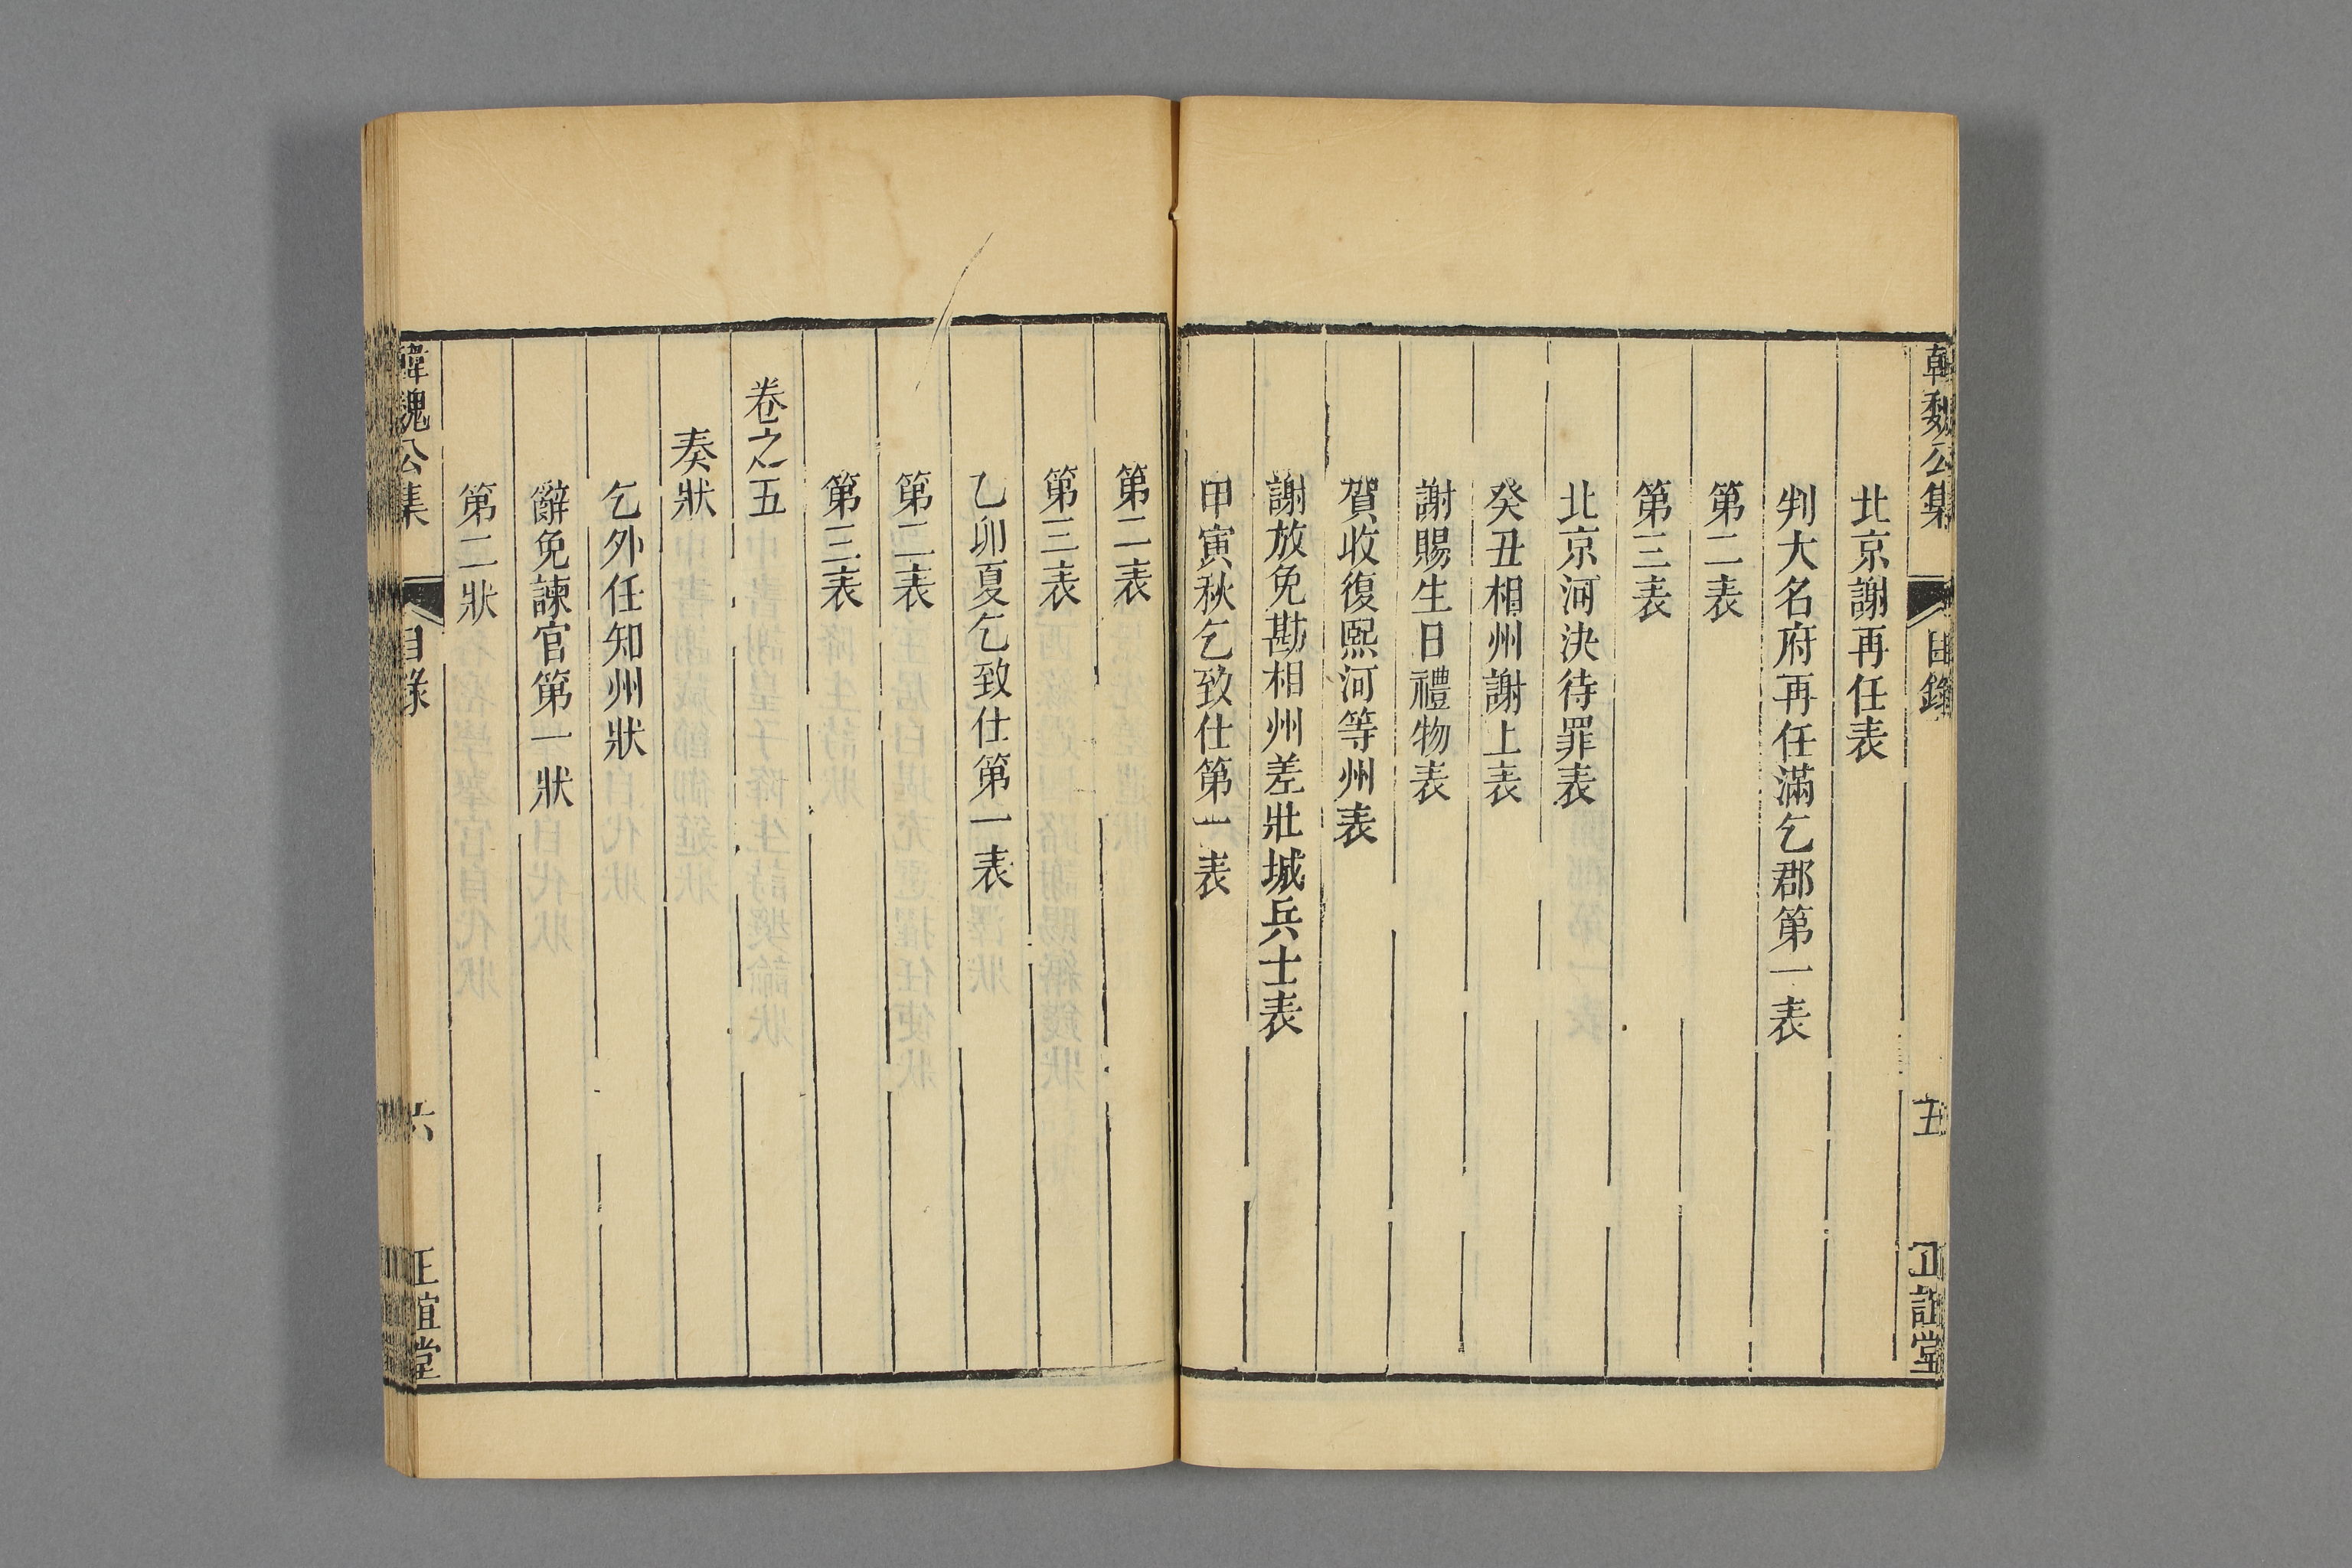 韓魏公集 目錄 五 正誼堂
北京謝再任表
判大名府再任滿乞郡第一表
第二表
第三表
北京河決待罪表
癸丑相州謝上表
謝賜生日禮物表
賀收復熙河等州表
謝放免勘相州差壯城兵士表
甲寅秋乞致仕第一表
第二表
第三表
乙卯夏乞致仕第一表
第二表
第三表
卷之五
奏狀
乞外任知州狀
辭免諫官第一狀
第二狀
韓魏公集 目錄 六 正誼堂